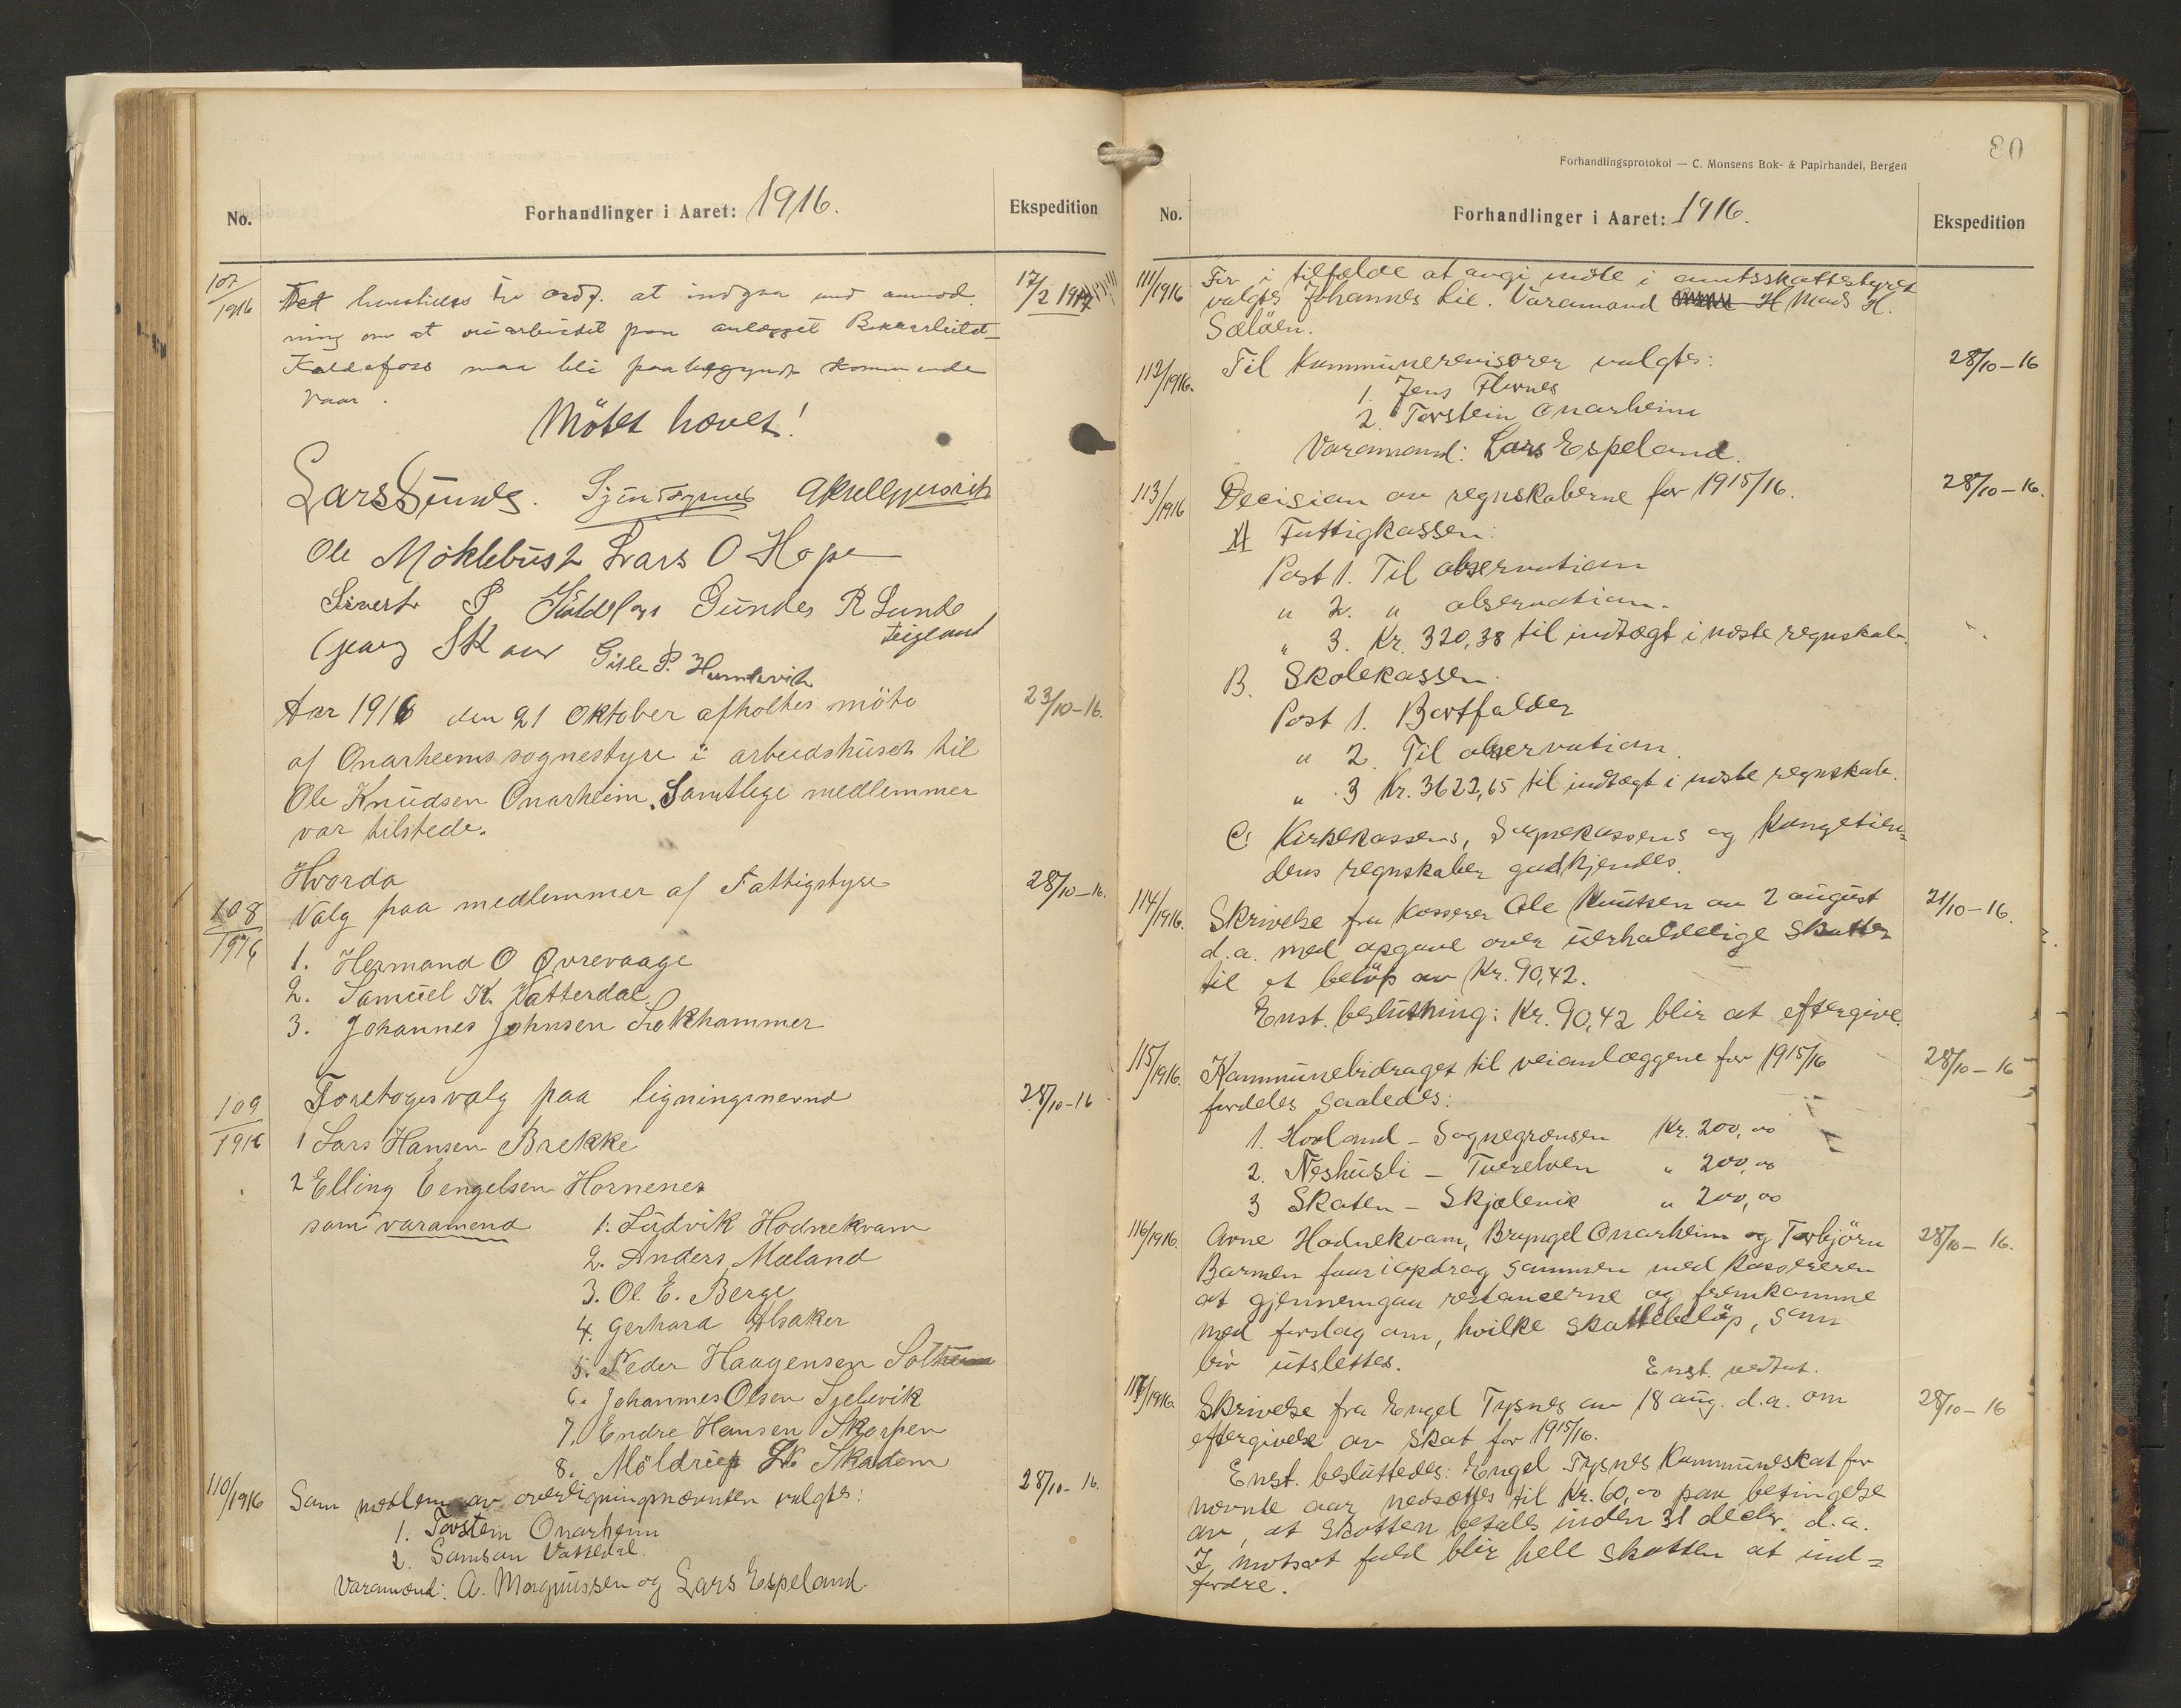 No.
Forhandlinger i Aaret: 1916.
Ekspedition
107/1916
17/2 1917
Det henstilles til ordf. at indgaa med anmod-
ning om at veiarbeidet paa anlægget
Koldefoss maa bli paabegyndt kommende
Vaar.
Mötet hævet!
Lars Sunde.
Ole Möklebust Lars O Hope
Sivert P Gundes R Lunde
Teigland
Georg Skaar Gisle P. Humlevik
Aar 1916 den 21 Oktober afholtes möte
23/10-16.
af Onarheims sognestyre i arbeidshuset til
Ole Knudsen Onarheim. Samtlige medlemmer
var tilstede.
Hvorda
108/1916
Valg paa medlemmer af Fattigstyre
28/10-16.
1. Hermand O Øvrevaage
2. Samuel K. Vatterdal
3. Johannes Johnsen Lokhammer
109/1916
Foretoges valg paa ligningsnevnd
28/10-16
1 Lars Hansen Brekke
2 Elling Eengelsen Hornenes
som varamend 1. Ludvik Hodnekvam
2. Anders Maland
3. Ol E. Berge
4. Gerhard Alsaker
5. Peder Haagensen Solheim
6. Johannes Olsen Sjelevik
7. Endre Hansen Skorpen
8. Möldrup Skadem
110/1916
Som medlem av overligningsnævnden valgtes:
28/10-16.
1. Torstein Onarheim
2. Samson Vattedal.
Varamænd: A. Magnussen og Lars Espeland.
80
Forhandlingsprotokol — C. Monsens Bok- & Papirhandel, Bergen
No.
Forhandlinger i Aaret: 1916.
Ekspedition
111/1916
For i tilfælde at avgi møte i amtsskattestyret
valgtes Johannes Lie. Varamand H Mads H.
Sæløen.
112/1916.
Til Kommunerevisorer valgtes:
28/10-16
1. Jens Flornes
2. Torstein Onarheim
Varamand: Lars Espeland.
113/1916
Decision av regnskaberne for 1915/16.
28/10-16.
A Fattigkassen:
Post 1. Til observation
" 2. " observation.
" 3. Kr. 320,38 til indtægt i næste regnskab.
B. Skolekassen.
Post 1. Bortfalder
" 2. Til observation.
" 3 Kr. 3622,65 til indtægt i næste regnskab.
C. Kirkekassens, Sognekassens og Kongetien-
dens regnskaber godkjendes.
114/1916.
Skrivelse fra Kasserer Ole Knutsen av 2 august
21/10-16.
d.a. med opgave over uerholdelige skatter
til et beløp av Kr. 90,42.
Enst. beslutning: Kr. 90,42 blir at eftergive.
115/1916.
Kommunebidraget til veianlæggene for 1915/16
28/10-16
fordeles saaledes:
1. Hovland - Sognegrænsen Kr. 200,00
2. Neshusli - Tverelven " 200,00
3 Skaten - Skjælevik " 200,00
116/1916.
Arne Hodnekvam, Bryngel Onarheim og Torbjörn
28/10-16.
Barmen faar i opdrag sammen med kassereren
at gjennemgaa restancerne og fremkomme
med forslag om, hvilke skattebeløp, som
bör utslettes.
Enst. vedtat.
117/1916.
Skrivelse fra Engel Tysnes av 18 aug. d.a. om
28/10-16
eftergivelse av skat for 1915/16.
Enst. besluttedes: Engel Tysnes Kommuneskat for
nævnte aar nedsættes til Kr. 60,00 paa betingelse
av, at skatten betales inden 31 decbr. d.a.
I motsat fald blir hele skatten at ind-
fordre.